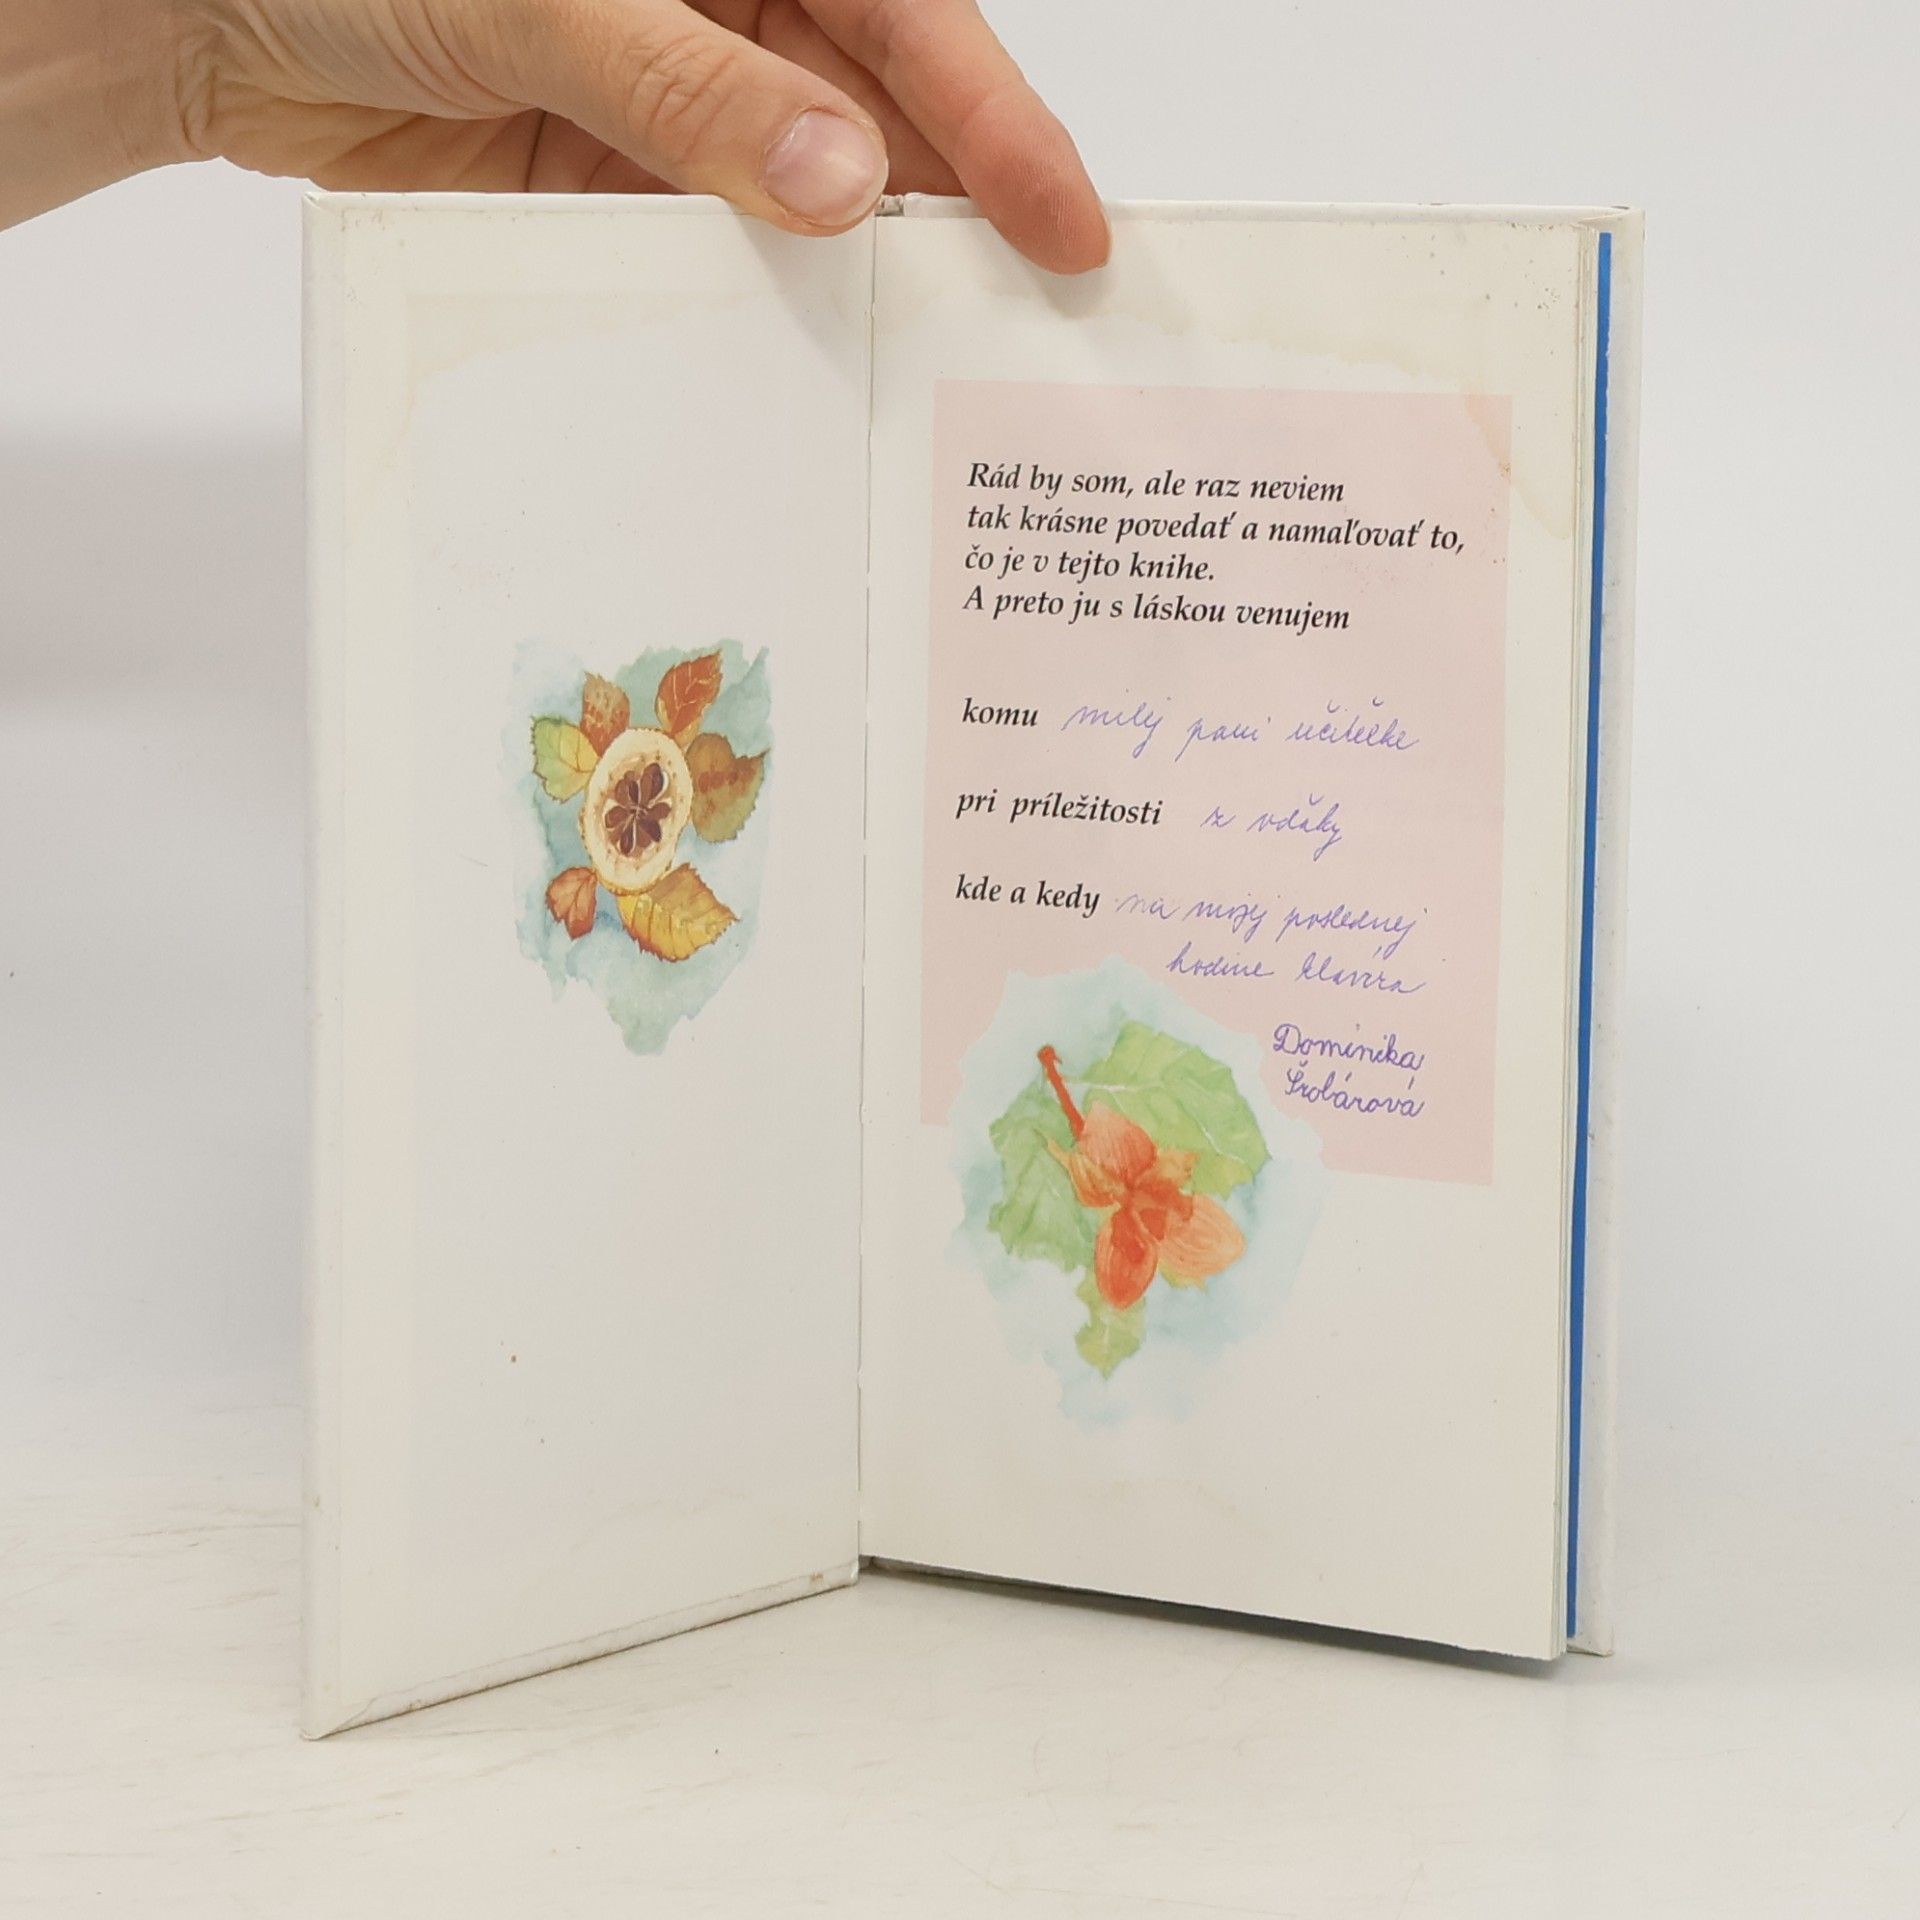 Rád by som, ale raz neviem
tak krásne povedať a namaľovať to,
čo je v tejto knihe.
A preto ju s láskou venujem
komu milej pani učiteľke
pri príležitosti z vďaky
kde a kedy na mojej poslednej
hodine klavíra
Dominika
Šrobárová